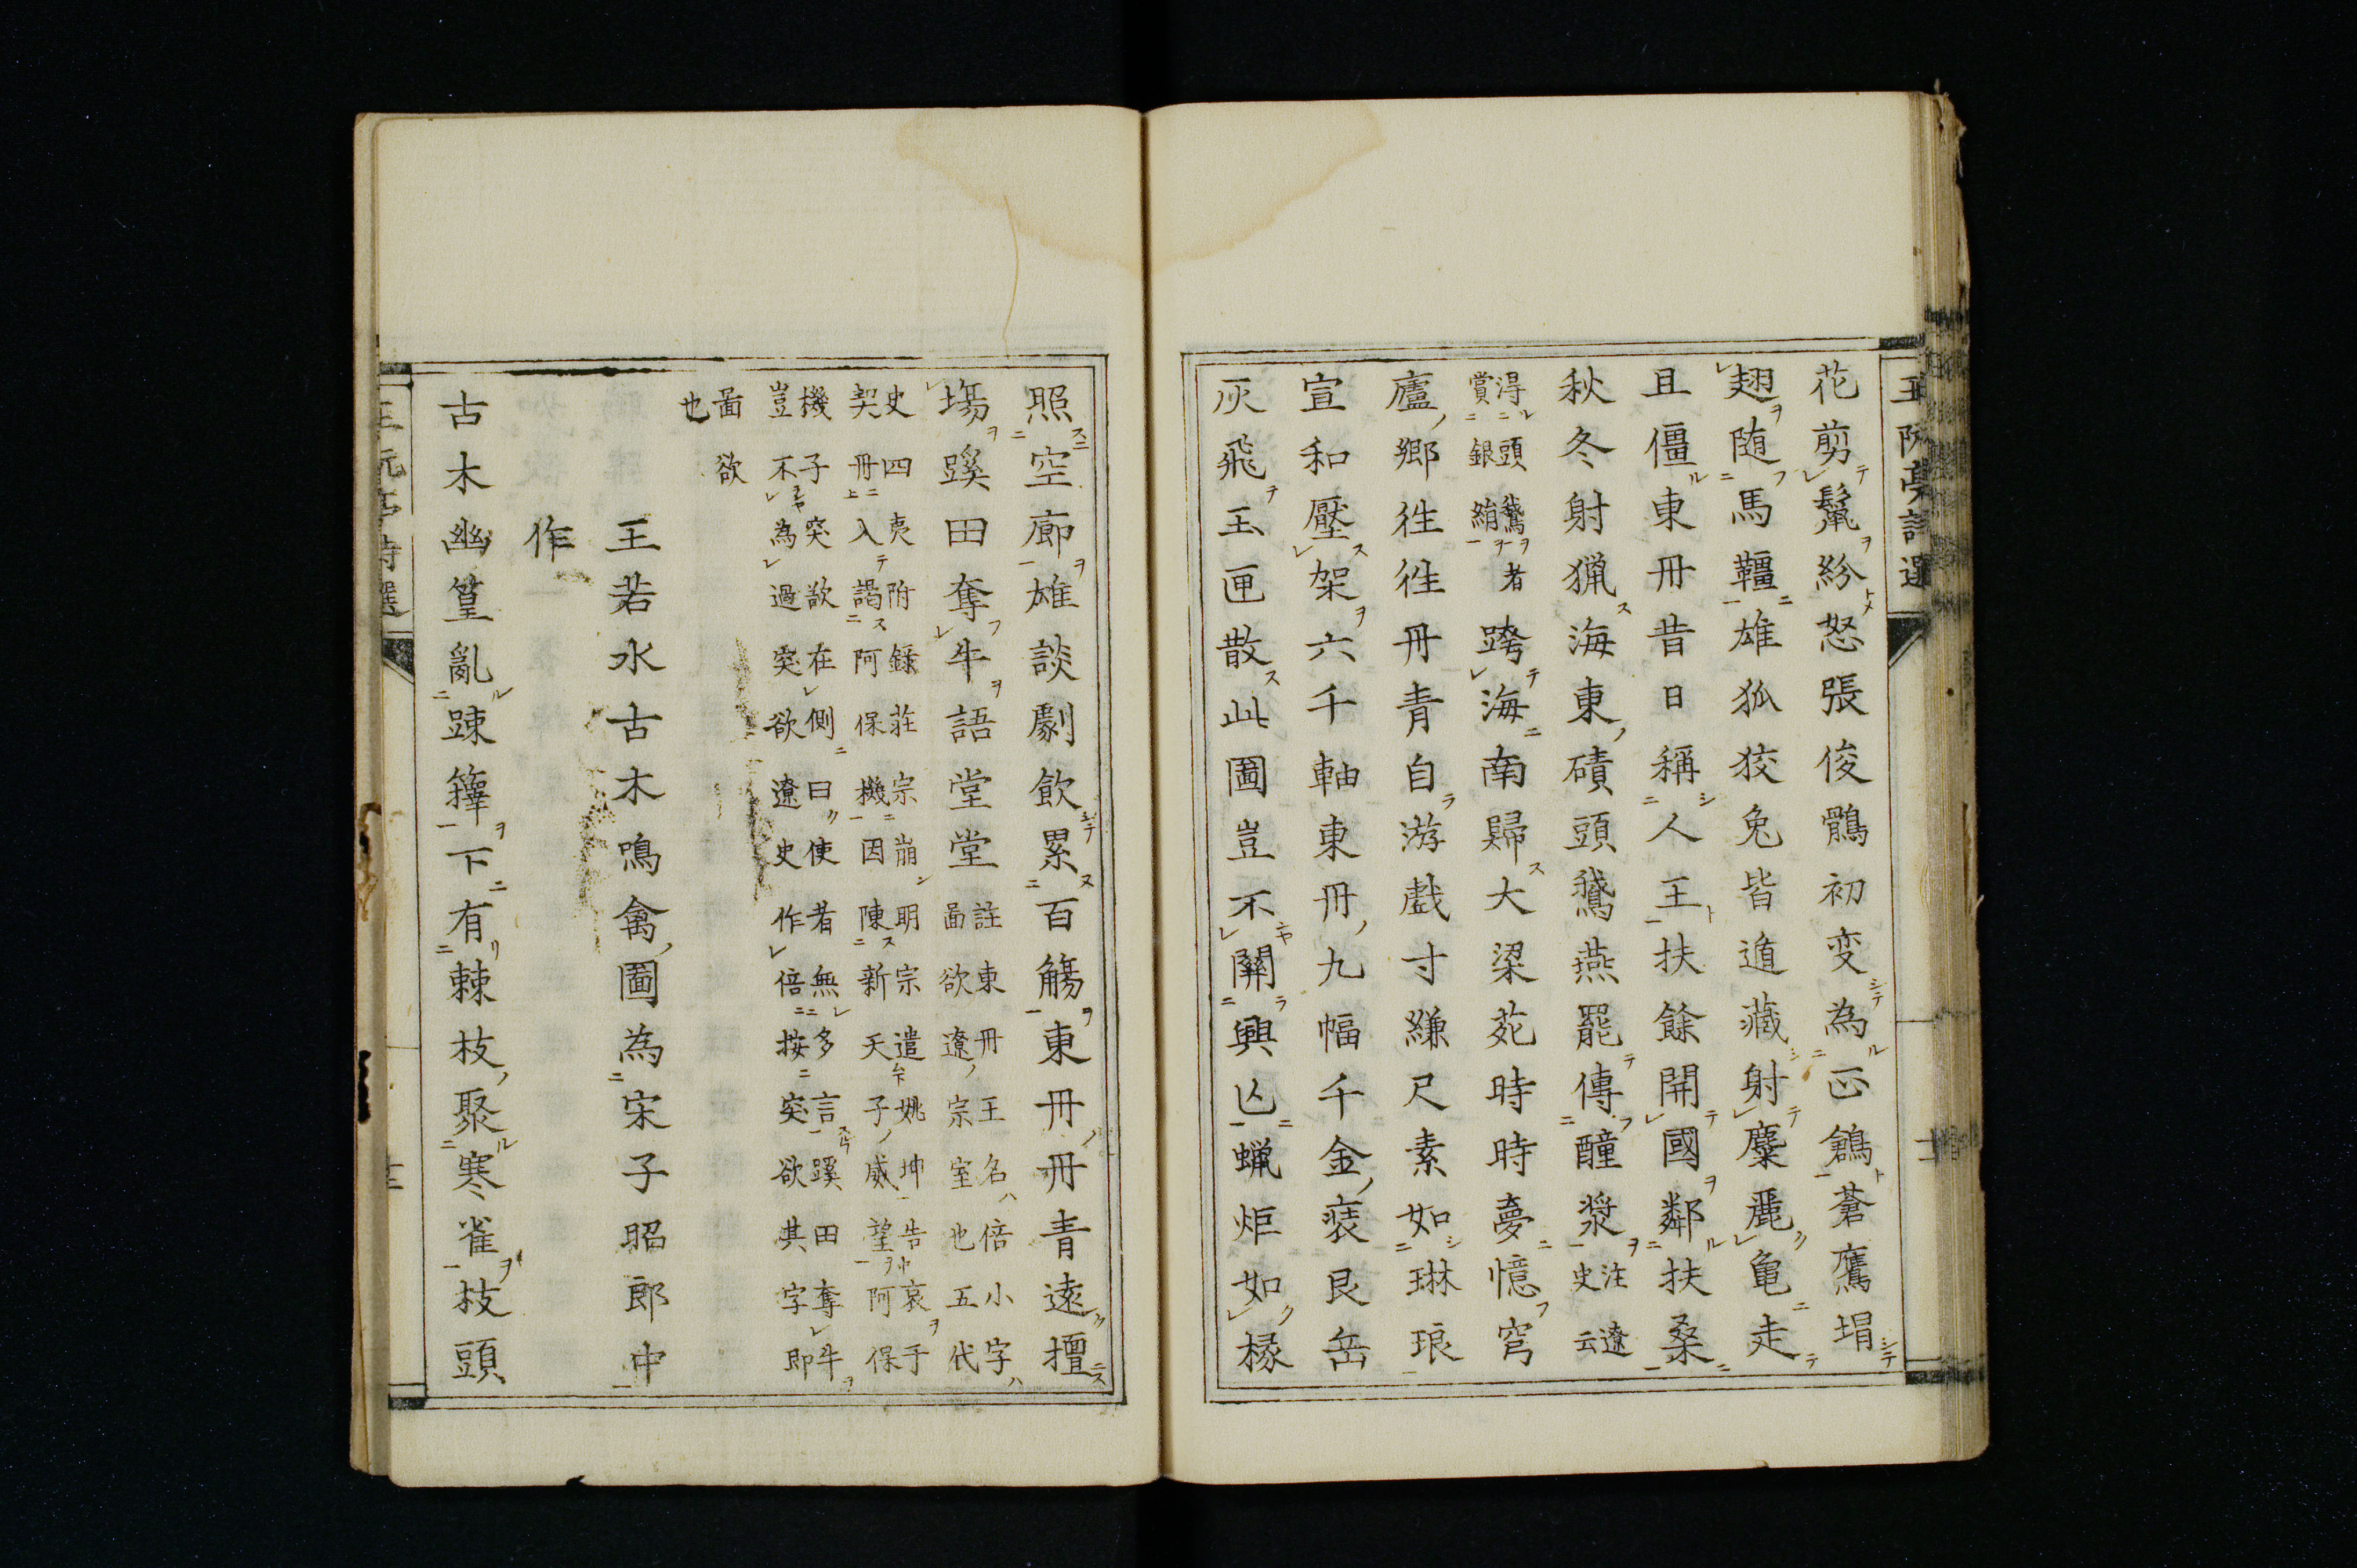 花剪鬣紛怒張俊鶻初変為正鶬蒼鷹埍
翅随馬韁雄狐狡兔皆遁藏射麋麗亀走
且僵東丹昔日稱人王扶餘開國鄰扶桑
秋冬射猟海東磧頭鵞燕罷傳醽漿注遼史云
得頭鵞者賞銀絹跨海南歸大梁苑時時夢憶穹
廬郷徃徃丹青自游戯寸縑尺素如琳琅
宣和壓架六千軸東丹九幅千金裝艮岳
灰飛玉匣散此圖豈不關興亾蝋炬如椽
照空廊雄談劇飲累百觴東丹丹青遠擅
塲蹊田奪牛語堂堂註東丹王名倍小字啚欲遼宗室也五代
史四夷附錄莊宗崩明宗遣姚坤告哀于契丹入謁阿保機因陳新天子威望阿保
機子突欲在側曰使者無多言蹊田奪牛豈不為過突欲遼史作倍按突欲其字即
啚欲也
王若水古木鳴禽圖為宋子昭郎中
作
古木幽篁亂踈籜下有棘枝聚寒雀枝頭